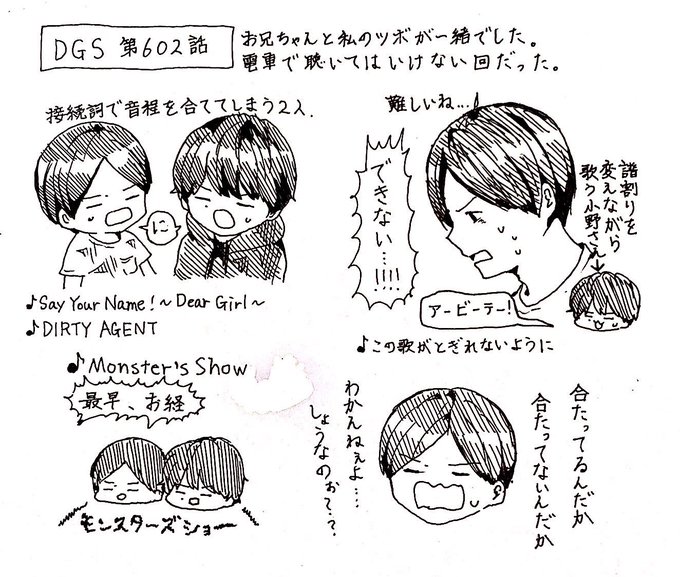 DGS 第602話
お兄ちゃんと私のツボが一緒でした。
電車で聴いてはいけない回だった。
接続詞で音程を合ててしまう2人.
に
♪Say Your Name!~Dear Girl~
♪DIRTY AGENT
難しいね…♪
できない…!!!!
譜割りを
変えながら
歌う小野さん
アービーテー!
♪この歌がとぎれないように
♪Monster's Show
最早、お経
モンスターズショー
合たってるんだか
合たってないんだか
わかんねぇよ…
しょうなのぉ~?？